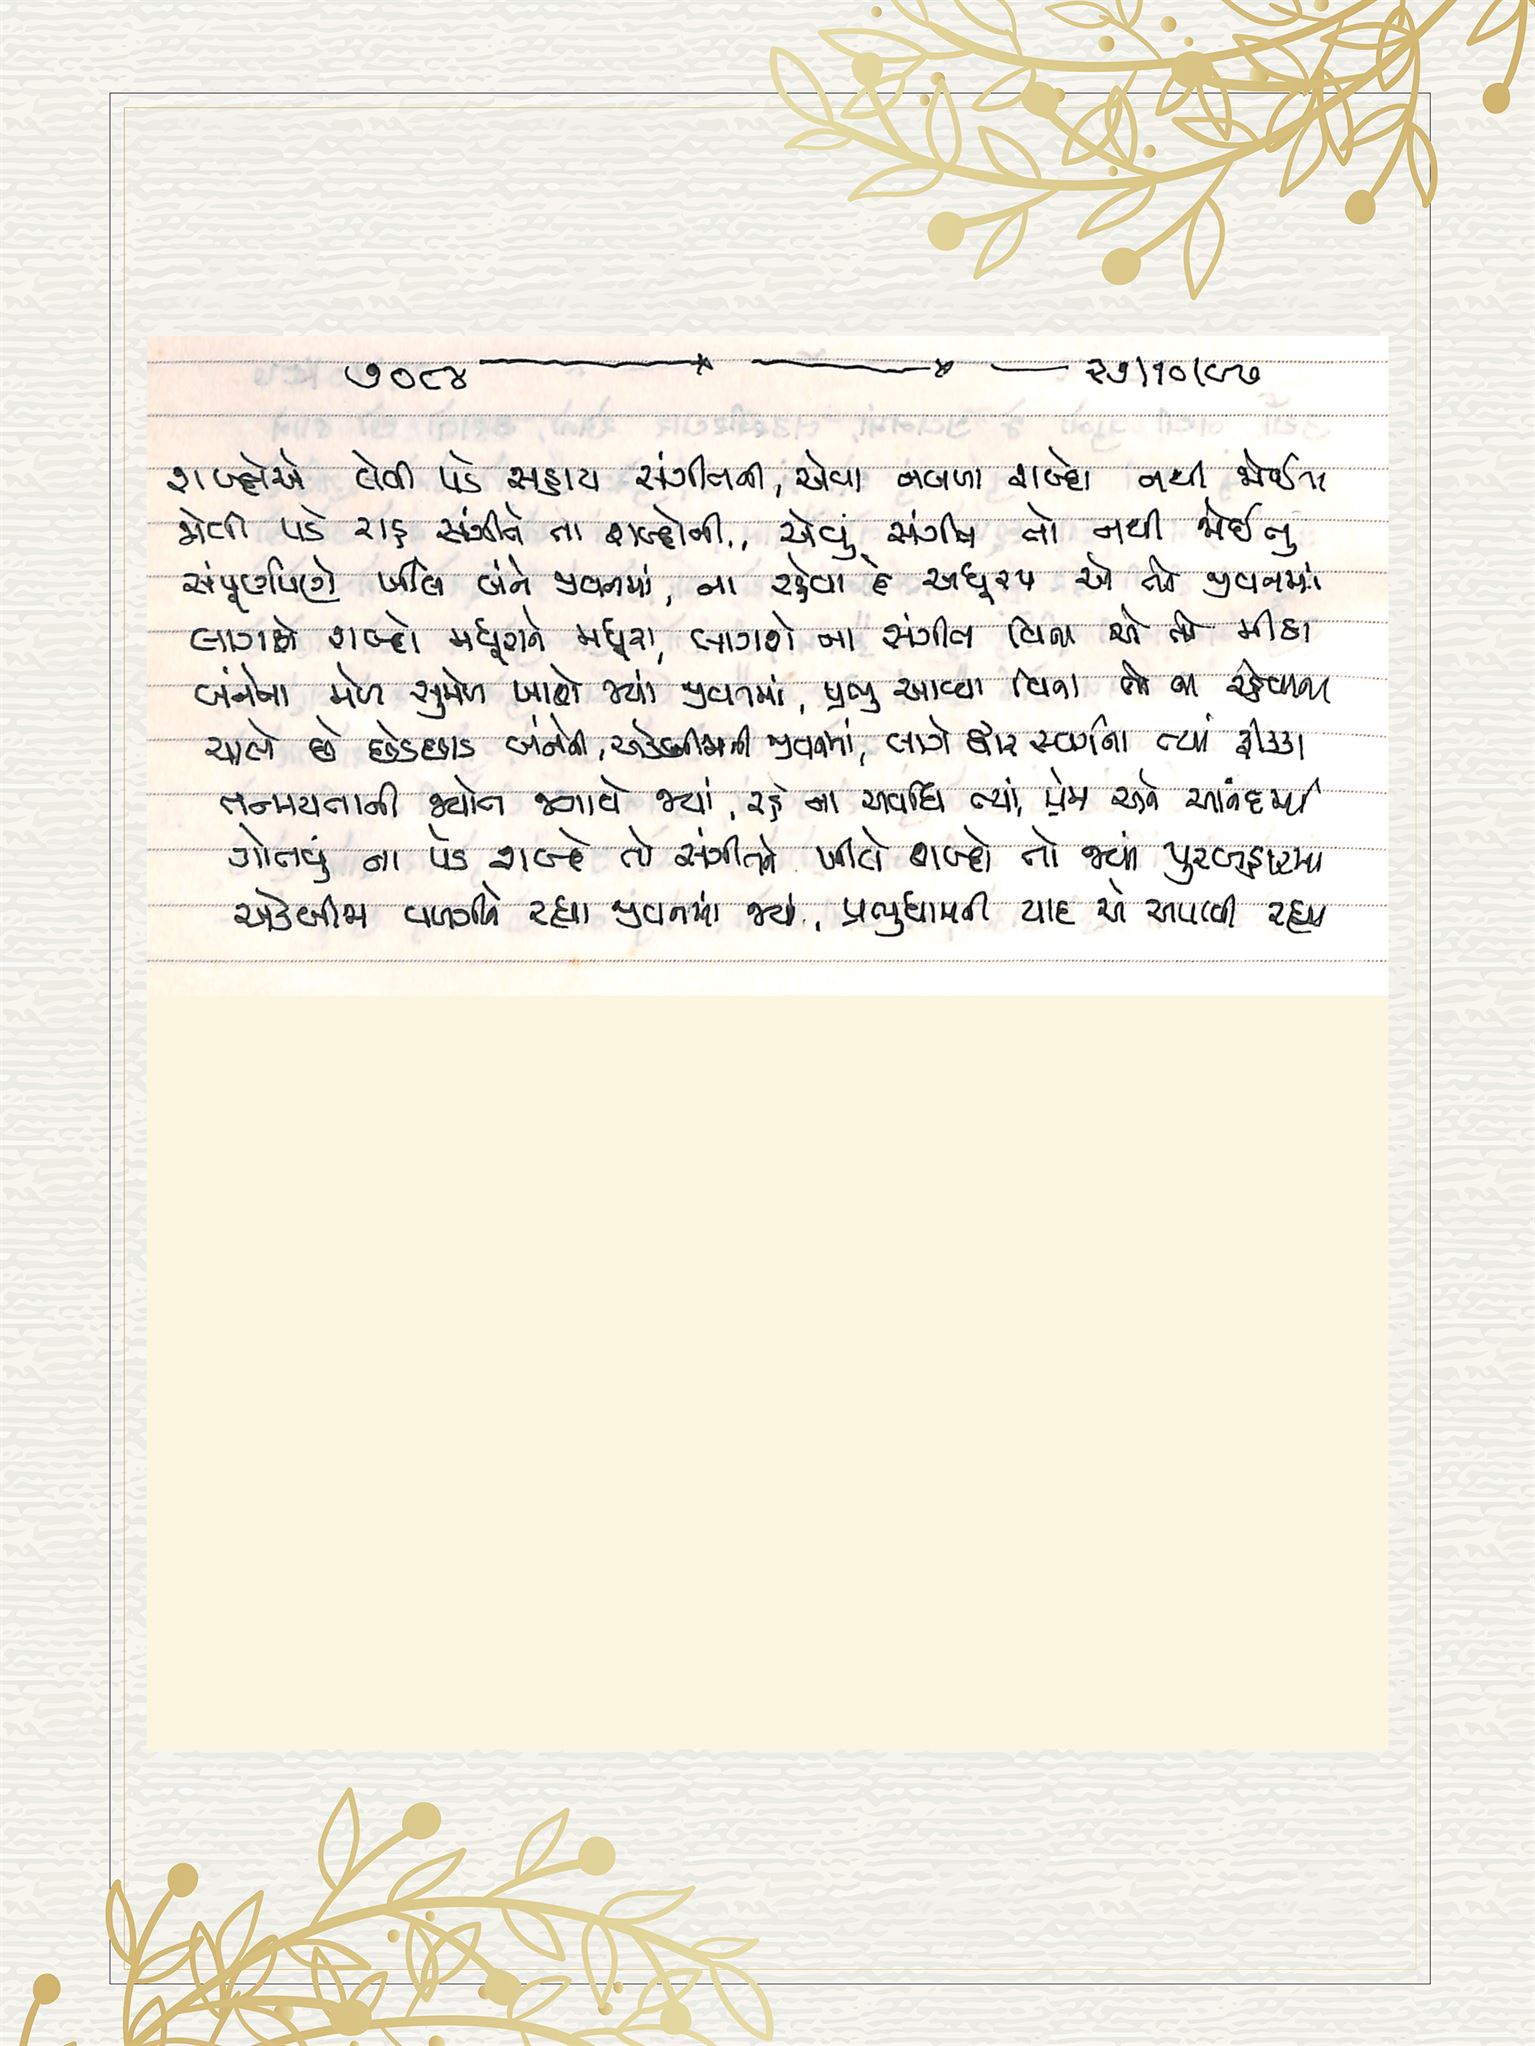 ૭૦૮૪ ૨૭/૧૦/૯૭
શબ્દોએ લેવી પડે સહાય સંગીતની, એવા નબળા શબ્દો નથી જોઈતા
જોવી પડે રાહ સંગીતે તા શબ્દોની, એવું સંગીત તો નથી જોઈતુ
સંપૂર્ણપણે ખીલે બંને જીવનમાં, ના રહેવા દે અધૂરપ એ તો જીવનમાં
લાગશે શબ્દો મધુરાને મધુરા, લાગશે ના સંગીત વિના એ તો મીઠા
બંનેના મેળ સુમેળ ખાશે જ્યાં જીવનમાં, પ્રભુ આવ્યા વિના તો ના રહેવાના
ચાલે છે છેડછાડ બંનેની, એકબીજાની જીવનમાં, લાગે દ્વાર સ્વર્ગના ત્યાં ફીક્કા
તન્મયતાની જ્યોત જગાવે જ્યાં, રહે ના અવધિ ત્યાં, પ્રેમ અને આનંદમાં
ગોતવું ના પડે શબ્દે તો સંગીતને ખીલે શબ્દો તો જ્યાં પુરબહારમા
એકબીજા વળગીને રહ્યા જીવનમાં જ્યાં, પ્રભુધામની યાદ એ અપાવી રહ્યા